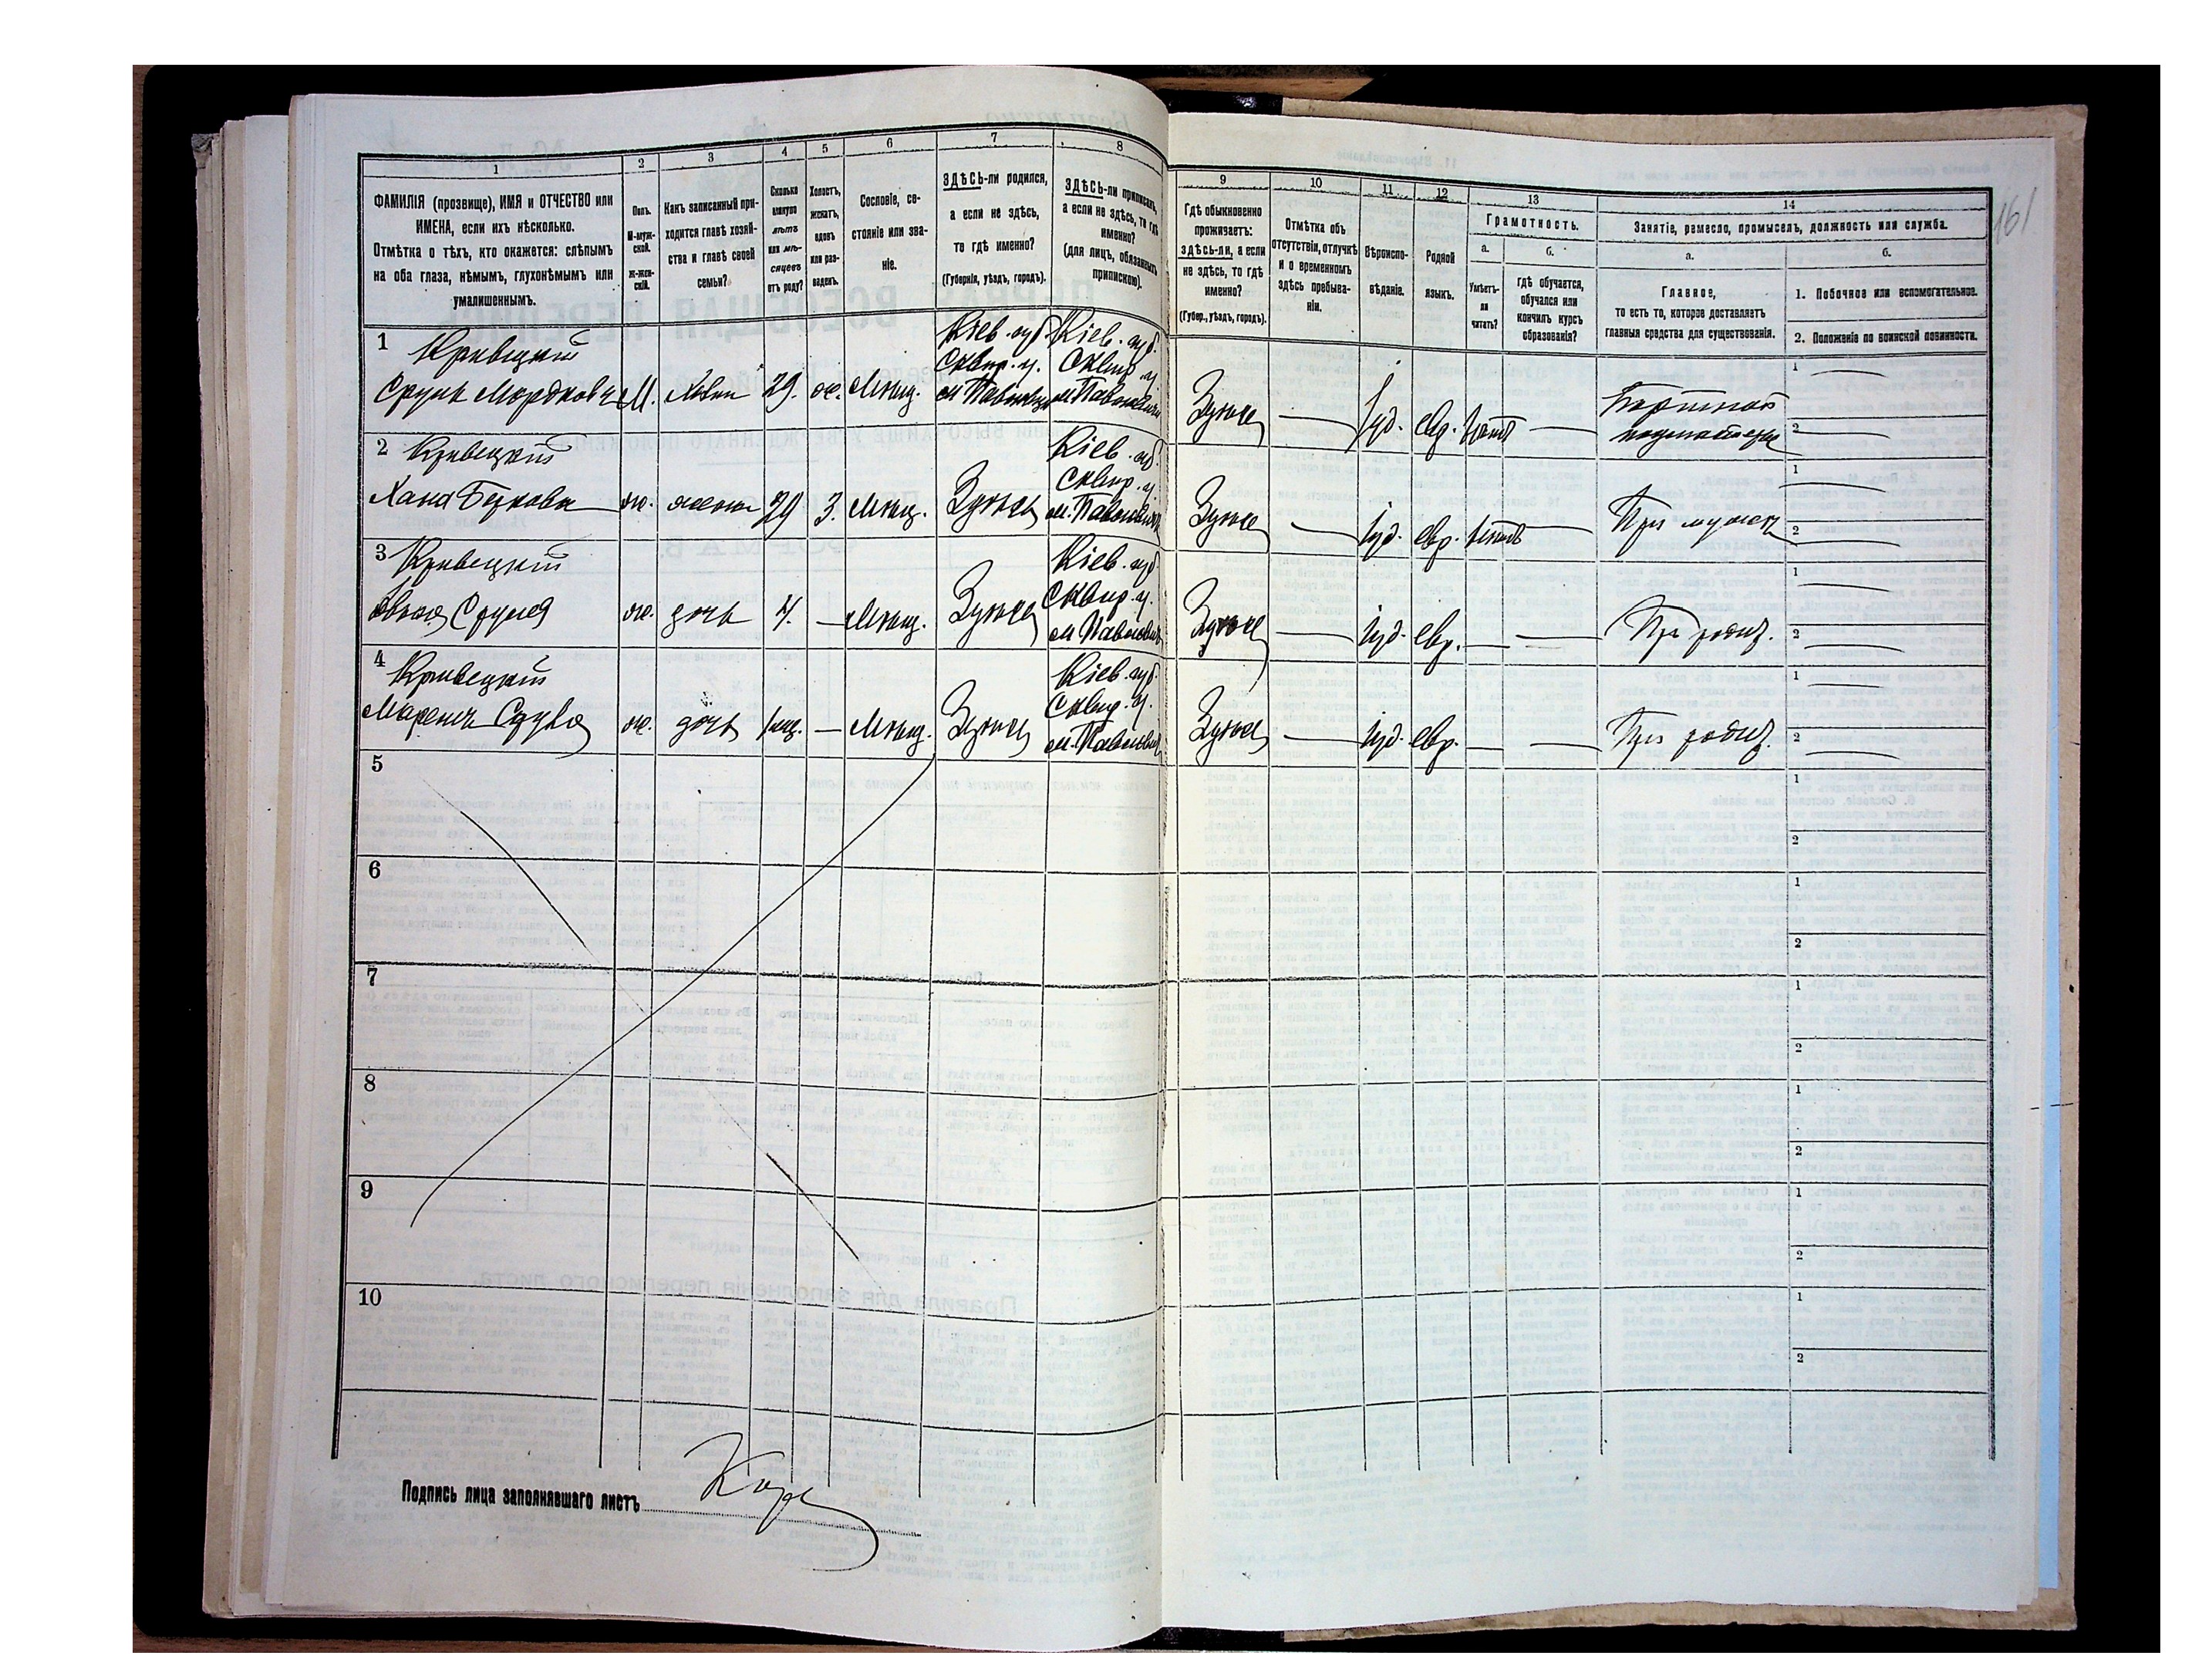 1
2
3
4
5
6
7
8
ФАМИЛІЯ (прозвище), ИМЯ и ОТЧЕСТВО или
ИМЕНА, если ихъ нѣсколько.
Отмѣтка о тѣхъ, кто окажется: слѣпымъ
на оба глаза, нѣмымъ, глухонѣмымъ или
умалишеннымъ.
Полъ.
М-муж-
ской.
Ж-жен-
скій.
Какъ записанный при-
ходится главѣ хозяй-
ства и главѣ своей
семьи?
Сколько
минуло
лѣтъ
или мѣ-
сяцевъ
отъ роду?
Холостъ,
женатъ,
вдовъ
или раз-
веденъ.
Сословіе, со-
стояніе или зва-
ніе.
ЗДѢСЬ-ли родился,
а если не здѣсь,
то гдѣ именно?
(Губернія, уѣздъ, городъ).
ЗДѢСЬ-ли приписанъ,
а если не здѣсь, то гдѣ
именно?
(для лицъ, обязанныхъ
припискою).
9
10
11
12
13
14
Гдѣ обыкновенно
проживаетъ:
здѣсь-ли, а если
не здѣсь, то гдѣ
именно?
(Губер., уѣздъ, городъ).
Отмѣтка объ
отсутствіи, отлучкѣ
и о временномъ
здѣсь пребыва-
ніи.
Вѣроиспо-
вѣданіе.
Родной
языкъ.
Грамотность.
а.
б.
Умѣетъ-
ли
читать?
гдѣ обучается,
обучался или
кончилъ курсъ
образованія?
Занятіе, ремесло, промыселъ, должность или служба.
а.
б.
Главное,
то есть то, которое доставляетъ
главныя средства для существованія.
1. Побочное или вспомогательное.
2. Положеніе по воинской повинности.
161
1 Кривецкий
Сруль Мордковъ М. 29. ж. Мѣщ.
Кіев. губ.
Сквир. у.
Кіев. губ.
Сквир. у.
іуд. евр.
Портной
1
2
2 Кривецкій
Хана Беркова ж. жена 29 З. Мѣщ.
Кіев. губ.
Сквир. у.
іуд. евр.
При мужѣ
1
2
3 Кривецкій
Срулев ж. дочь 4. — Мѣщ.
Кіев. губ.
Сквир. у.
іуд. евр. — —
При родит.
1
2
4 Кривецкій
ж. дочь 1 мѣс. — Мѣщ.
Кіев. губ.
Сквир. у.
іуд. евр. — —
При родит.
1
2
5
1
2
6
1
2
7
1
2
8
1
2
9
1
2
10
1
2
Подпись лица заполнявшаго листъ